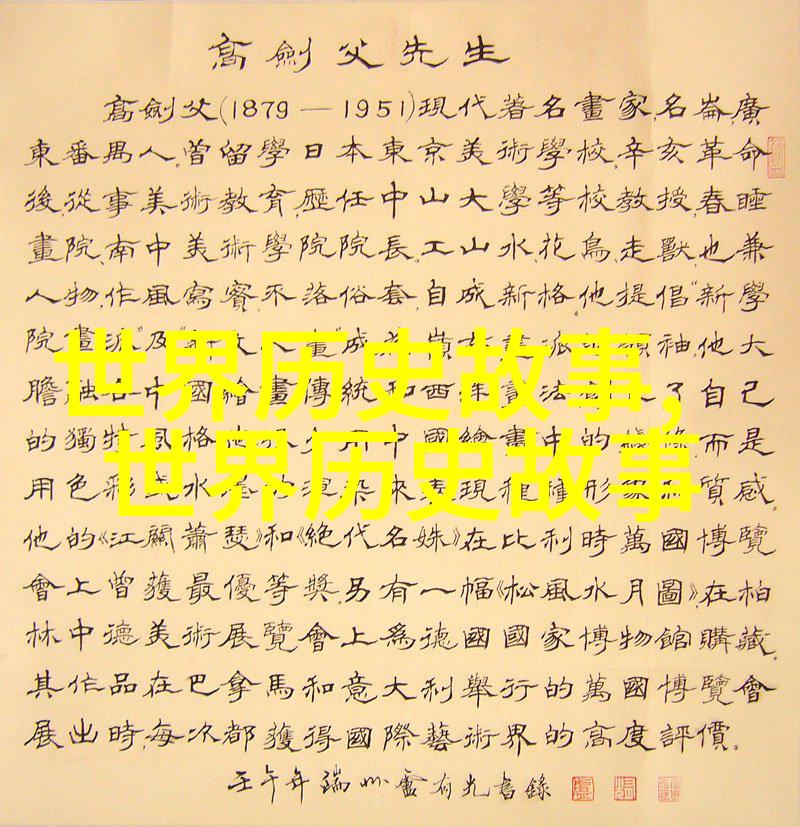 高劍父先生
高劍父(1879—1951)現代著名畫家,名崙,廣
東番禺人。曾留學日本東京美術學校。辛亥革命
後,從事美術教育,歷任中山大學等校教授,春睡
畫院、南中美術學院院長。工山水、花鳥、走獸,也兼
人物,作風寫實,不落俗套,自成新格。他提倡“新學
院畫派”及“新文人畫”成為嶺
膽融合中國繪畫傳統和西法 了自己
的獨特風格 用中國繪畫中的 而是
用色彩或水 染來表現種種形象和質感。
他的《江關蕭瑟》和《絕代名姝》在比利時萬國博覽
會上曾獲最優等獎,另有一幅《松風水月圖》,在柏
林中德美術展覽會上為德國國家博物館購藏。
其作品在巴拿馬和意大利舉行的萬國博覽會
展出時,每次都獲得國際藝術界的高度評價。
壬午年端州盧有光書錄
世界历史故事,
世界历史故事